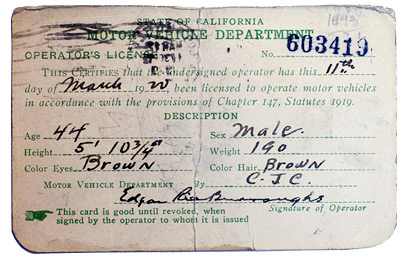 STATE OF CALIFORNIA
MOTOR VEHICLE DEPARTMENT
OPERATOR'S LICENSE No. 603419
THIS CERTIFIES that the undersigned operator has this 11th
day of March 1920, been licensed to operate motor vehicles
in accordance with the provisions of Chapter 147, Statutes 1919.
DESCRIPTION
Age 44 Sex Male.
Height 5' 10 3/4" Weight 190
Color Eyes Brown Color Hair Brown
MOTOR VEHICLE DEPARTMENT By C.J.C.
Edgar Rice Burroughs
This card is good until revoked, when Signature of Operator
signed by the operator to whom it is issued